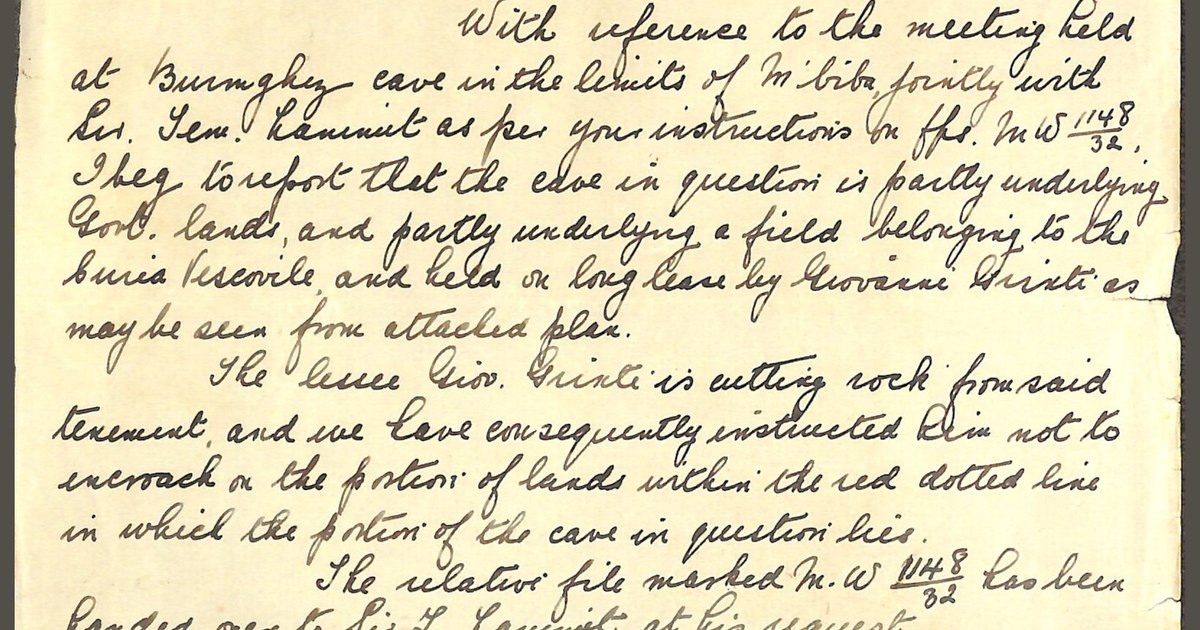 With reference to the meeting held
at Burmghez cave in the limits of M'biba, jointly with
Sir. Tem. Zammit as per your instructions on ffs. MW 1148/32,
I beg to report that the cave in question is partly underlying
Govt. lands, and partly underlying a field belonging to the
Curia Vescovile, and held on long lease by Giovanni Grinti as
may be seen from attached plan.
The lessee Giov. Grinti is cutting rock from said
tenement, and we have consequently instructed him not to
encroach on the portion of lands within the red dotted line
in which the portion of the cave in question lies.
The relative file marked M.W 1148/32 has been
handed over to Sir T. Zammit at his request